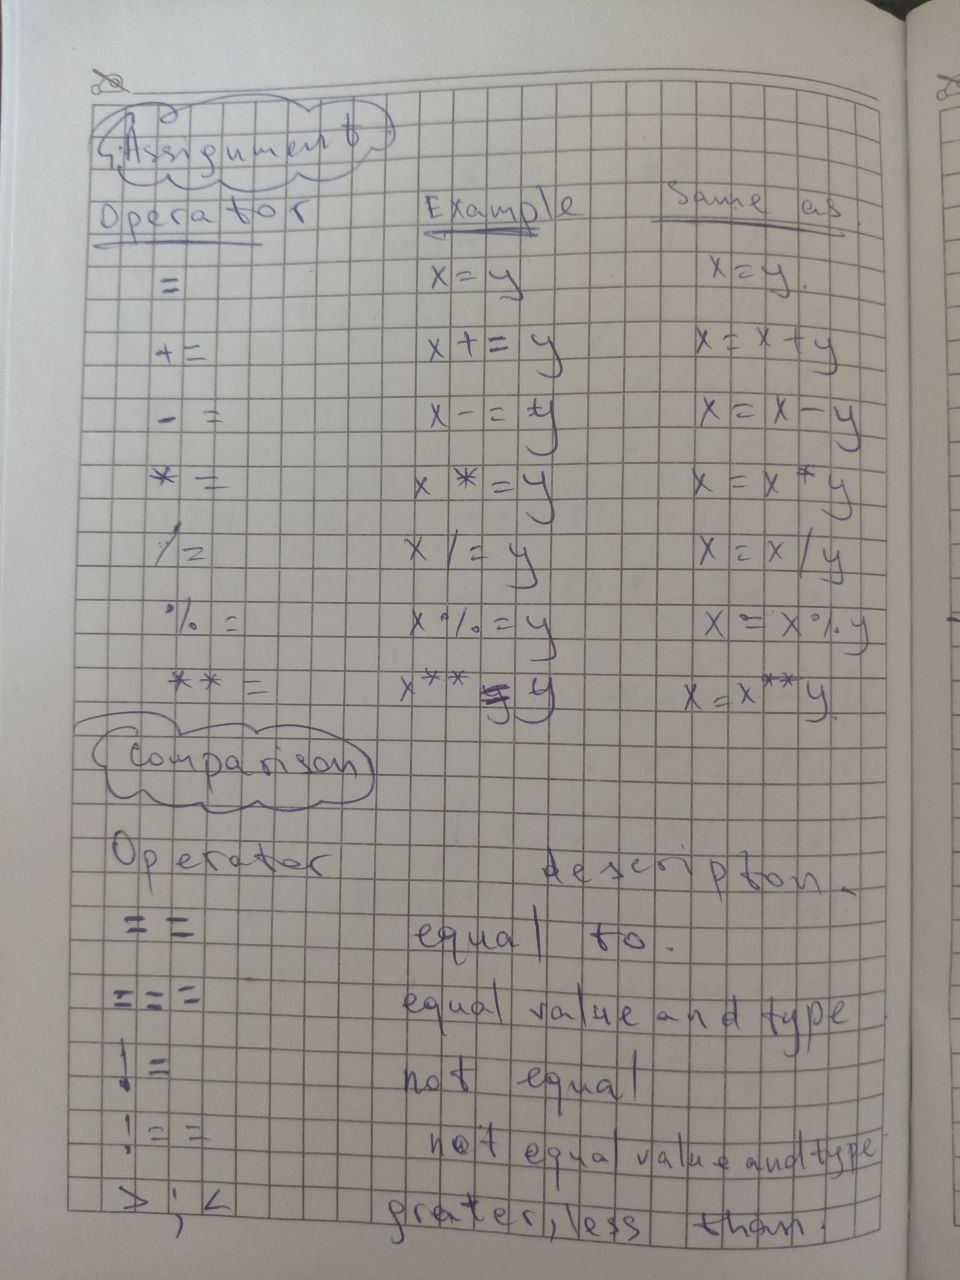 Assignment
Operator Example Same as
= x = y x = y.
+= x += y x = x + y
- = x - = y x = x - y
* = x * = y x = x * y
/= x /= y x = x / y
% = x % = y x = x % y
** = x ** = y x = x ** y.
Comparison
Operator descripton.
== equal to.
=== equal value and type
!= not equal
!== not equal value and type
> ; < greater, less than.